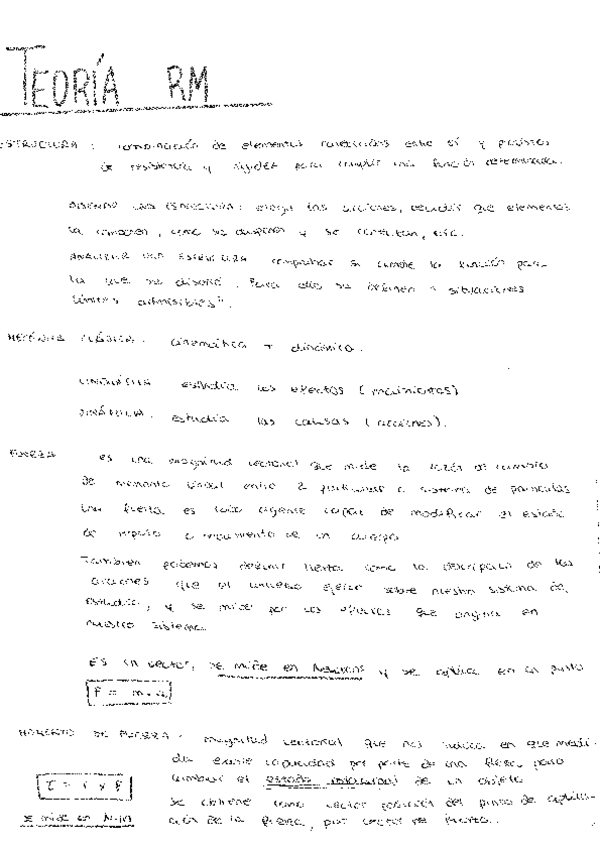 TEORÍA RM
ESTRUCTURA: combinación de elementos conectados entre sí y provistos
de resistencia y rigidez para cumplir una función determinada.
DISEÑAR UNA ESTRUCTURA: elegir las acciones, decidir que elementos
la componen, como se disponen y se conectan, etc.
ANALIZAR UNA ESTRUCTURA comprobar si cumple la función para
la que se diseñó. Para ello se definen "situaciones
límites admisibles".
MECÁNICA CLÁSICA: cinemática + dinámica.
CINEMÁTICA estudia los efectos (movimientos)
DINÁMICA: estudia las causas (acciones).
FUERZA es una magnitud vectorial que mide la razón de cambio
de momento lineal entre 2 partículas o sistema de partículas
Una fuerza es todo agente capaz de modificar el estado
de reposo o movimiento de un cuerpo
También podemos definir fuerza como la descripción de las
acciones que el universo ejerce sobre nuestro sistema de
estudio, y se mide por los efectos que origina en
nuestro sistema.
Es un vector, se mide en Newtons y se aplica en un punto
F = m · a
MOMENTO DE FUERZA: magnitud vectorial que nos indica en que medi-
da existe capacidad por parte de una fuerza para
cambiar el estado rotacional de un objeto
τ = r x F
Se obtiene como vector posición del punto de aplica-
se mide en N·m
ción de la fuerza, por vector de fuerza.